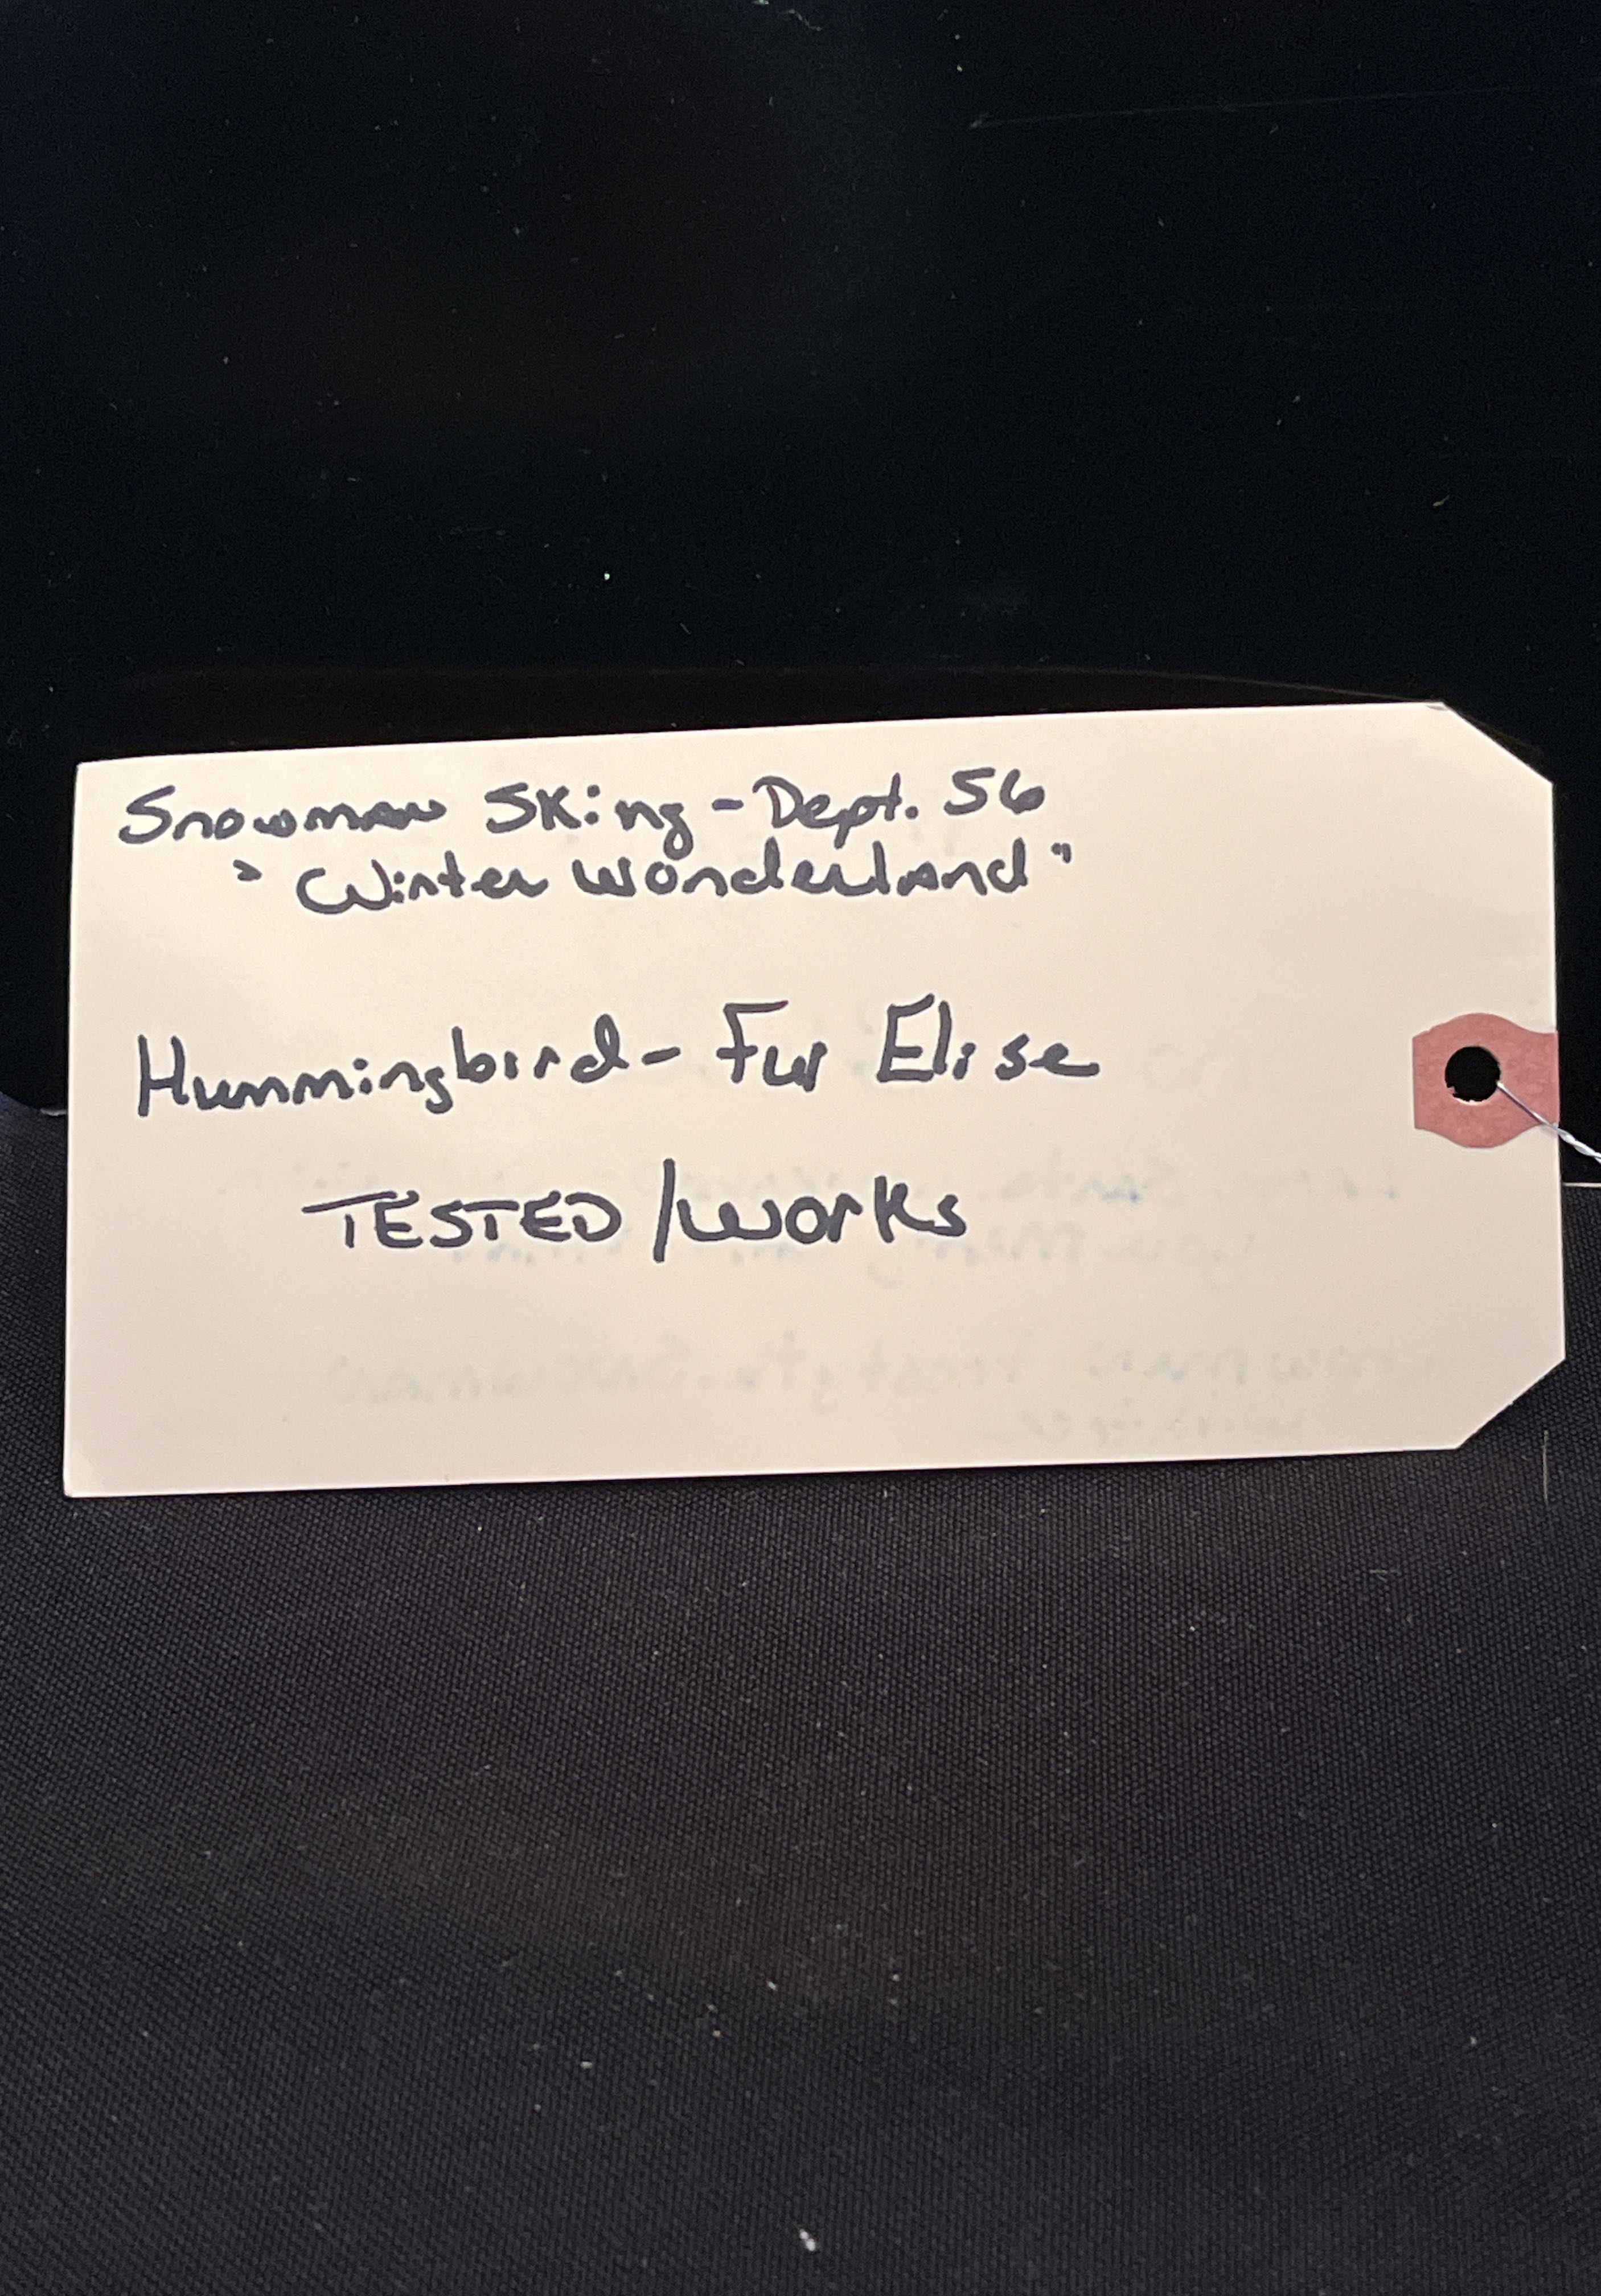 Snowman SKiing - Dept. 56
" Winter Wonderland "
Hummingbird - Fur Elise
TESTED / Works